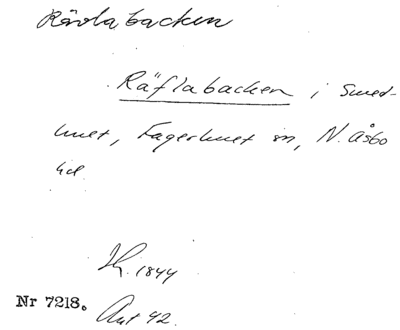 Rävlabacken
Räflabacken i Smed-
hult, Fagerhult sn, N. Åsbo
hd.
1844
Nr 7218.
Ant 42.